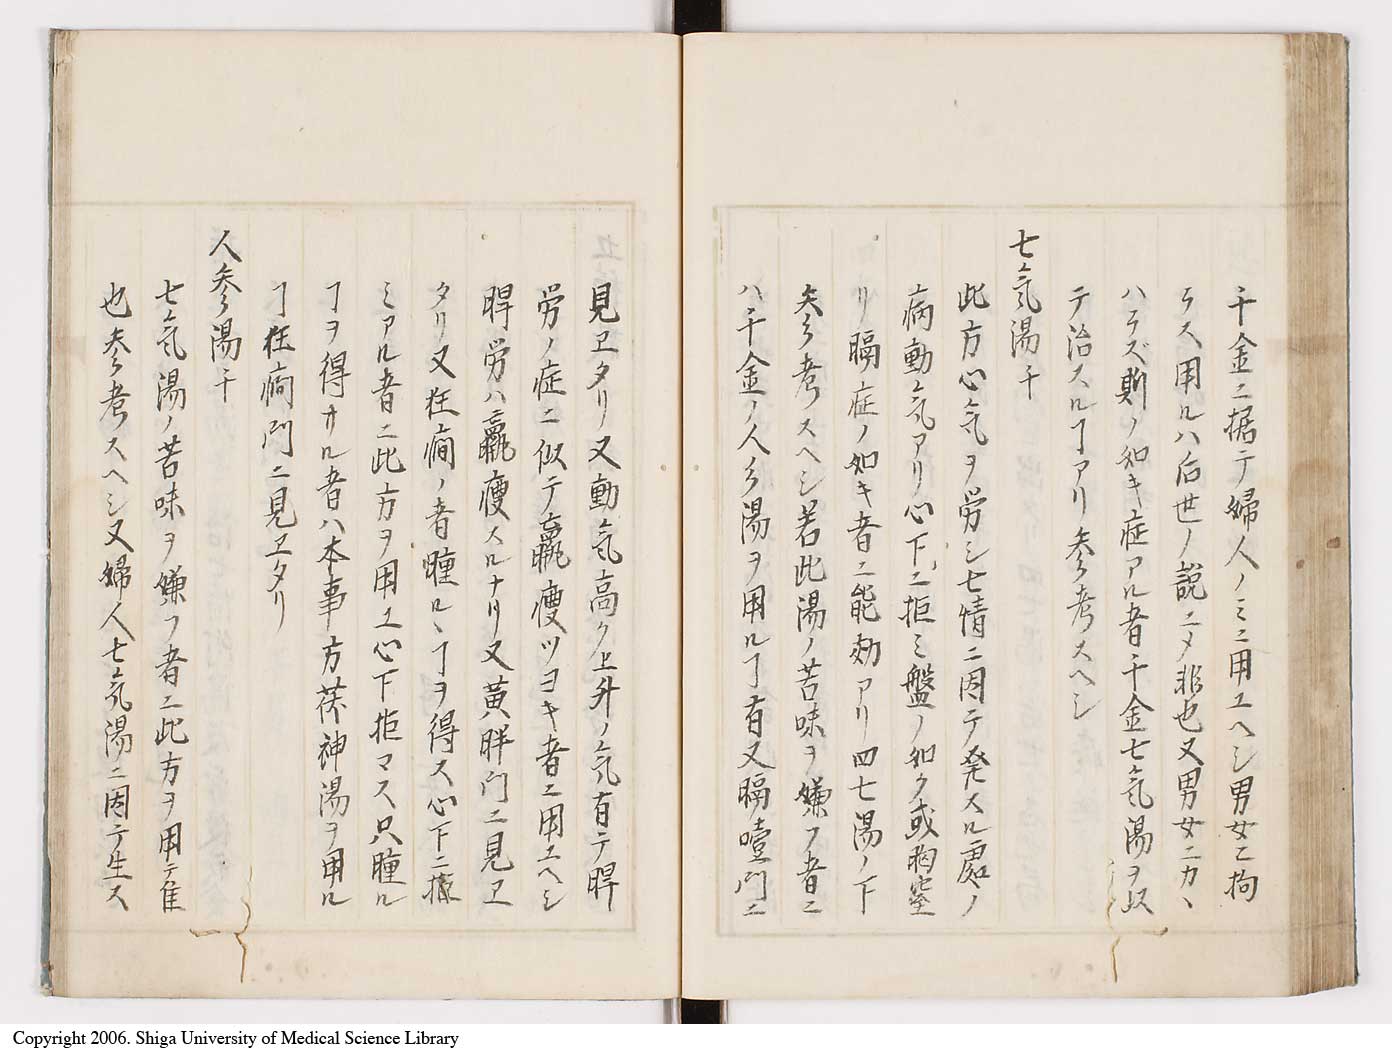 千金ニ据テ婦人ノミニ用ユヘシ男女ニ拘
ラス用ルハ后世ノ説ニメ非也又男女ニカヽ
ハラズ則ノ如キ症アル者千金七気湯ヲ以
テ治スルヿアリ参考スヘシ
七気湯千
此方心気ヲ労シ七情ニ因テ発スル處ノ
病動気アリ心下ニ拒ミ盤ノ如ク或胸窒
リ膈症ノ如キ者ニ能効アリ四七湯ノ下
矣参考スヘシ若此湯ノ苦味ヲ嫌フ者ニ
ハ千金ノ人参湯ヲ用ルヿ有又膈噎門ニ
見ヱタリ又動気高ク上升ノ気有テ脾
労ノ症ニ似テ羸痩ツヨキ者ニ用ユヘシ
脾労ハ羸痩スルナリ又黄胖門ニ見ヱ
タリ又狂癎ノ者瞳ルヽヿヲ得ス心下ニ拒
ミアル者ニ此方ヲ用ユ心下拒マス只瞳ル
ヿヲ得サル者ハ本事方茯神湯ヲ用ル
ヿ狂癎門ニ見ヱタリ
人参湯千
七気湯ノ苦味ヲ嫌フ者ニ此方ヲ用テ佳
也参考スヘシ又婦人七気湯ニ因テ生ス
Copyright 2006. Shiga University of Medical Science Library